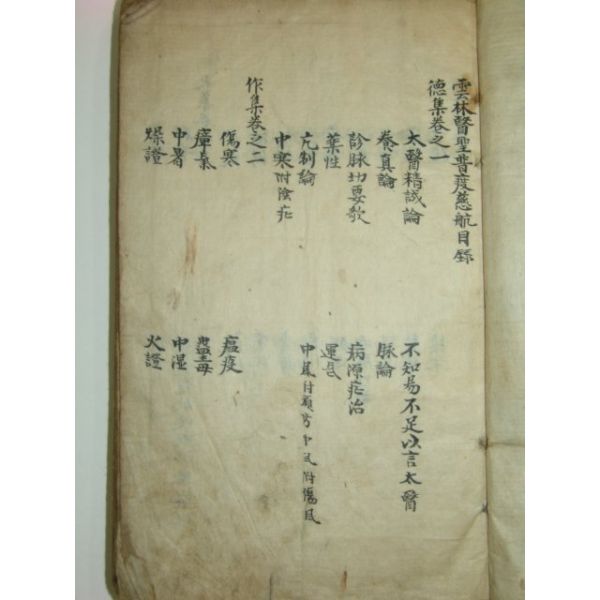 雲林醫聖普渡慈航目錄
德集卷之一
太醫精誠論 不知易不足以言太醫
養真論 脉論
診脉切要歌 病源症治
藥性 運氣
亢制論
中寒附陰症
作集卷之二
傷寒 瘟疫
瘴氣 蠱毒
中暑 中湿
燥證 火證